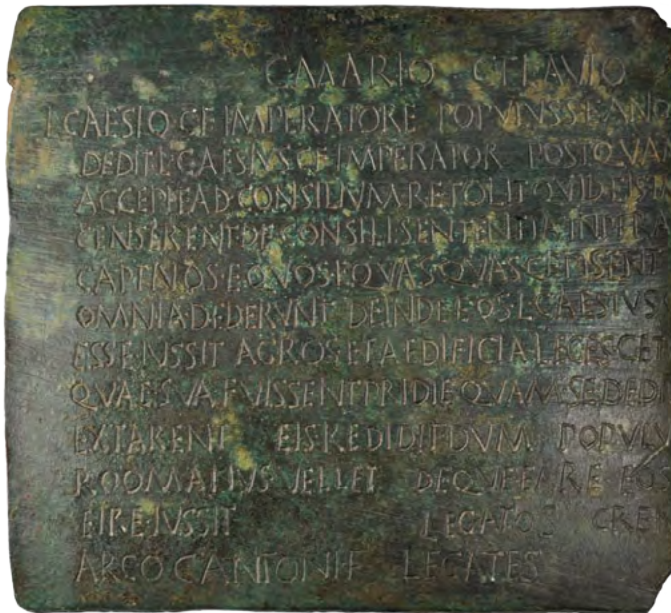 C MARIO C FLAVIO
L CAESIO C F IMPERATORE POPVLVS SEANO
DEDIT L CAESIVS C F IMPERATOR POSTQVAM
ACCEPIT AD CONSILIVM RETOLIT QVID EIS IM
CENSERENT DE CONSILI SENTENTIA INPERA
CAPTIVOS EQVOS EQVAS QVAS CEPISENT
OMNIA DEDERVNT DEINDE EOS L CAESIVS
ESSE IVSSIT AGROS ET AEDIFICIA LEGES CET
QVAE SVA FVISSENT PRIDIE QVAM SE DEDI
EXTARENT EIS REDIDIT DVM POPVLV
ROOMANVS VELLET DEQVE EA RE EO
EIRE IVSSIT LEGATOS CRE
ARCO CANTONI F LEGATES